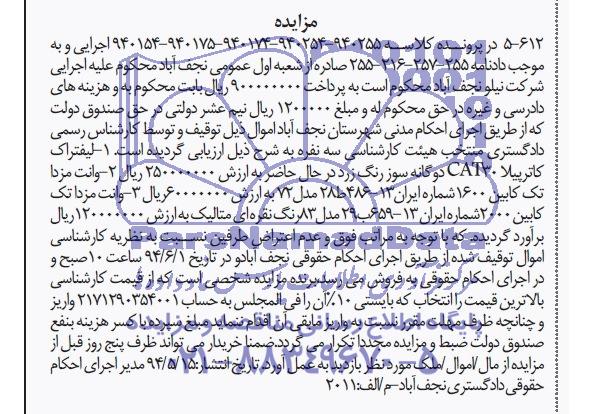 مزایده
۵-۶۱۲ در پرونده کلاسه ۹۴۰۲۵۵-۹۴۰۲۵۴-۹۴۰۱۷۴-۹۴۰۱۷۵-۹۴۰۱۵۴ اجرایی و به
موجب دادنامه ۲۵۵-۲۵۷-۲۱۶-۲۵۵ صادره از شعبه اول عمومی نجف آباد محکوم علیه اجرایی
شرکت نیلو نجف آباد محکوم است به پرداخت ۹۰۰۰۰۰۰۰۰ ریال بابت محکوم به و هزینه های
دادرسی و غیره در حق محکوم له و مبلغ ۱۲۰۰۰۰۰ ریال نیم عشر دولتی در حق صندوق دولت
که از طریق اجرای احکام مدنی شهرستان نجف آباد اموال ذیل توقیف و توسط کارشناس رسمی
دادگستری منتخب هیئت کارشناسی سه نفره به شرح ذیل ارزیابی گردیده است. ۱-لیفتراک
کاترپیلا CAT۳۰ دوگانه سوز رنگ زرد در حال حاضر به ارزش ۲۵۰۰۰۰۰۰۰ ریال ۲-وانت مزدا
تک کابین ۱۶۰۰ شماره ایران ۱۳-۴۸۶ط۲۸ مدل ۷۳ به ارزش ۶۰۰۰۰۰۰۰ ریال ۳-وانت مزدا تک
کابین ۲۰۰۰ شماره ایران ۱۳-۶۵۹ب۲۹ مدل ۸۳ رنگ نقره ای متالیک به ارزش ۱۲۰۰۰۰۰۰۰ ریال
برآورد گردیده، که با توجه به مراتب فوق و عدم اعتراض طرفین نسبت به نظریه کارشناسی
اموال توقیف شده از طریق اجرای احکام حقوقی نجف آباد و در تاریخ ۹۴/۶/۱ ساعت ۱۰ صبح و
در اجرای احکام حقوقی به فروش می رسد برنده مزایده شخصی است که از قیمت کارشناسی
بالاترین قیمت را انتخاب که بایستی ۱۰٪ آن را فی المجلس به حساب ۲۱۷۱۳۹۰۳۵۴۰۰۱ واریز
و چنانچه ظرف مهلت مقرر نسبت به واریز مابقی آن اقدام ننماید مبلغ سپرده با کسر هزینه بنفع
صندوق دولت ضبط و مزایده مجددا تکرار می گردد.ضمنا خریدار می تواند ظرف پنج روز قبل از
مزایده از مال/اموال/ملک مورد نظر بازدید به عمل آورد. تاریخ انتشار: ۹۴/۵/۱۵ مدیر اجرای احکام
حقوقی دادگستری نجف آباد-م/الف:۲۰۱۱
ParsNamadData
پایگاه اطلاع رسانی مناقصه و مزایده
۰۲۱-۸۸۳۴۹۶۷۰-۵